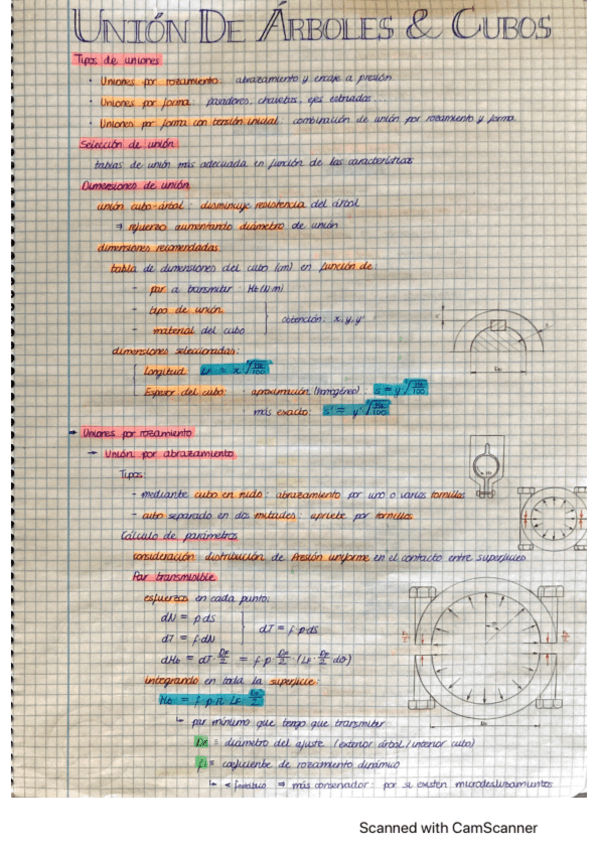 UNIÓN DE ÁRBOLES & CUBOS
Tipos de uniones
· Uniones por rozamiento: abrazamiento y encaje a presión
· Uniones por forma: pasadores, chavetas, ejes estriados...
· Uniones por forma con tensión inicial: combinación de unión por rozamiento y forma
Selección de unión
tablas de unión más adecuada en función de las características
Dimensiones de unión
unión cubo-árbol: disminuye resistencia del árbol
⇒ refuerzo aumentando diámetro de unión
dimensiones recomendadas
tabla de dimensiones del cubo (cm) en función de:
- par a transmitir: Mt (N·m)
- tipo de unión
- material del cubo
obtención: x, y, y'
dimensiones seleccionadas:
Longitud:
Espesor del cubo: aproximación (homogéneo):
más exacto:
→ Uniones por rozamiento
→ Unión por abrazamiento
Tipos:
- mediante cubo en nudo: abrazamiento por uno o varios tornillos
- cubo separado en dos mitades: apriete por tornillos
Cálculo de parámetros
consideración distribución de Presión uniforme en el contacto entre superficies
Par transmisible
esfuerzos en cada punto:
dN = p·dS
dT = f·dN
dT = f·p·dS
integrando en toda la superficie:
↳ par mínimo que tengo que transmitir
DF = diámetro del ajuste (exterior árbol/interior cubo)
f = coeficiente de rozamiento dinámico
⇒ más conservador: por si existen microdeslizamientos
Scanned with CamScanner